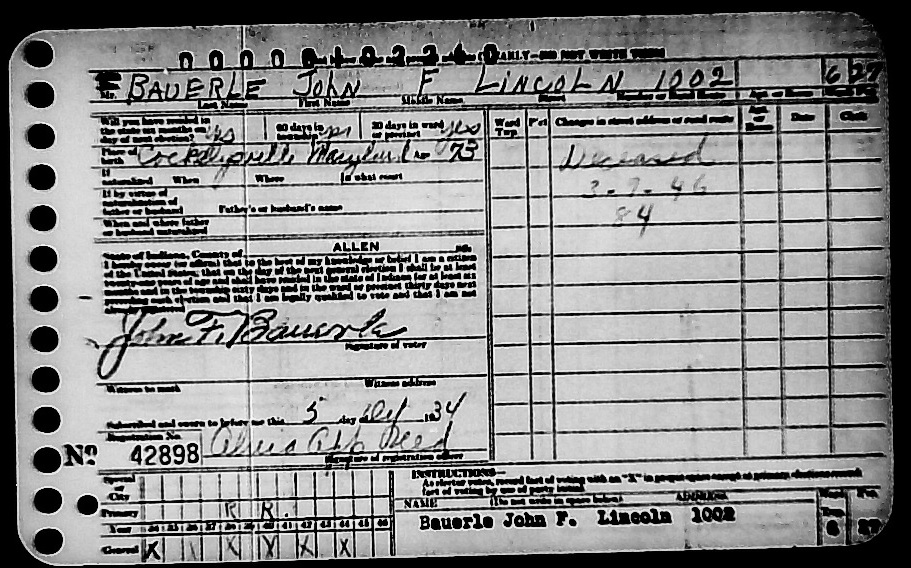 EARLY—DO NOT WRITE THESE
Mr. BAUERLE JOHN F LINCOLN 1002 6 27
Last Name First Name Middle Name Street Number or Rural Route
Will you have resided in the state six months on day of next election? Yes 60 days in township? yes 30 days in ward or precinct yes
Place of birth Cockeysville Maryland Age 73
If naturalized When Where In what court
If by virtue of naturalization of father or husband Father's or husband's name
When and where father or husband naturalized
Ward Twp. Pct Changes in street address or rural route Date Clerk
Deceased
3-7-46
84
State of Indiana, County of ALLEN
I hereby swear (or affirm) that to the best of my knowledge or belief I am a citizen
of the United States; that on the day of the next general election I shall be at least
twenty-one years of age and shall have resided in the state of Indiana for at least six
months and in the township sixty days and in the ward or precinct thirty days next
preceding such election and that I am legally qualified to vote and that I am not
John F. Bauerle
Signature of voter
Witness to mark Witness address
Subscribed and sworn to before me this 5 day of 1934
Registration No.
No 42898 Reed
Signature of registration officer
Special or City
Primary R R.
Year 34 35 36 37 38 39 40 41 42 43 44 45 46
General X X X X X
INSTRUCTIONS—
As elector votes, record fact of voting with an "X" in proper space except at primary elections record
fact of voting by use of party initial.
NAME (Do not write in space below) ADDRESS
Bauerle John F. Lincoln 1002
6 27